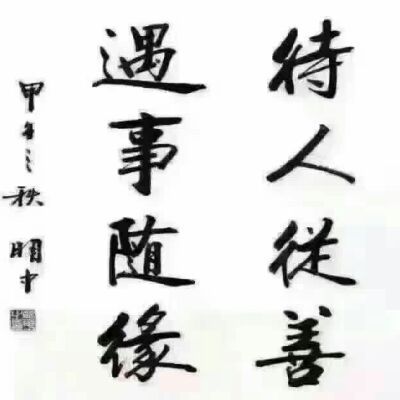 待人從善
遇事随缘
甲午之秋 明中